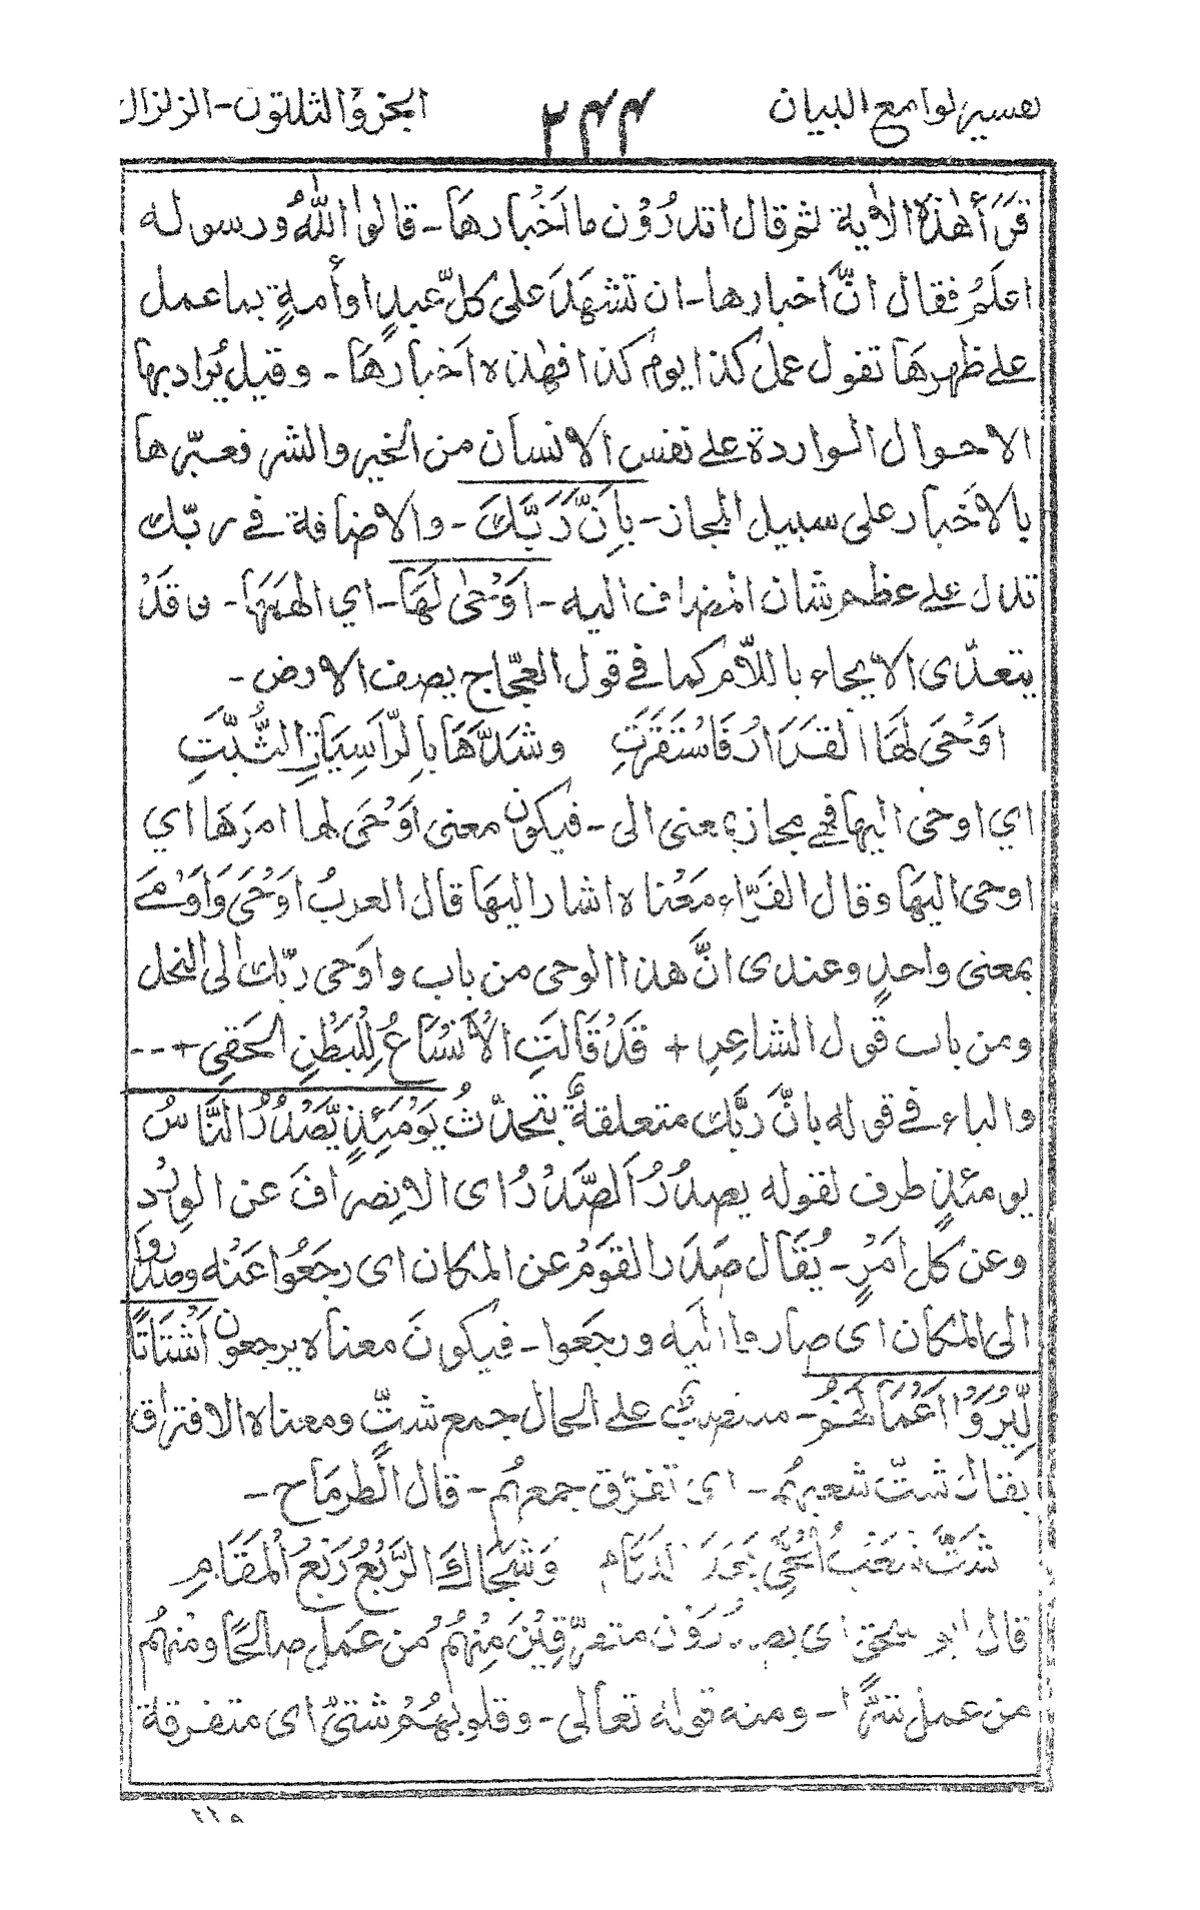 تفسير لوامع البيان ٢٤٤ الجزؤ الثلثون - الزلزال
قَرَأَ هٰذه الاٰية ثم قال اتدرُوْن ما اَخْبارها - قالوا اللّٰهُ ورسوله
اعلَمُ فقال انَّ اخبارها - ان تشهَدَ على كلّ عبدٍ او أمةٍ بما عمل
على ظهرهَا تقول عمل كذا يوم كذا فهٰذه اَخبارُهَا - وقيل يُراد بها
الاحوال الواردة على نفس الانسان من الخير والشر فعبّرها
بالاَخبار على سبيل المجاز - بِاَنَّ رَبَّكَ - والاضافة فى ربّك
تدل على عظم شان المضاف اليه - اَوْحٰى لَهَا - اي الهَمَهَا - وقَدْ
يتعدّى الايحاء باللّام كما فى قول العجّاج يصف الارض -
اَوْحَى لَهَا القَرَارُ فَاسْتَقَرَّتِ وشدَّهَا بِالرّاسِيَاتِ الثُّبَّتِ
اي اوحٰى اليها فهى مجاز بمعنى الى - فيكون معنى اَوْحَى لها امرَهَا اي
اوحى اليهَا وقال الفَرّاء مَعْناه اشار اليهَا قال العربُ اَوْحَى وَاَوْمَے
بمعنى واحدٍ وعندى انَّ هذا الوحى من باب واَوحى ربّك الى النحل
ومن باب قول الشاعرِ + قَدْ قَالَتِ الْاَنْسَاعُ لِلْبَطْنِ الحَقِى + --
والباء فى قوله بانّ رَبَّك متعلقةٌ بتحدّثُ يَوْمَئِذٍ يَّصْدُرُ النَّاسُ
يومئذٍ ظرف لقوله يصدُرُ اَلصَّدْرُ اى الانِصرافَ عن الوِرْد
وعن كل اَمْرٍ - يُقَال صَدَرَ القَوْمُ عن المكان اى رجَعُوا عَنْه وصدَرُوا
الى المكان اى صاروا اليه ورجَعوا - فيكونَ معناه يرجعون اَشْتَاتًا
لِّيُرَوْا اَعْمَالَهُمْ - منصوبٌ على الحال جمع شتّ ومعناه الافتراق
يقال شتّ شعبهُم - اى تفرّق جمعهُم - قال الطرمّاح -
شَتَّ شَعْبُ الْحَىِّ بَعْدَ وَشَجَاكَ الرَّبْعُ رَبْعُ الْمَقَامِ
قال ابو اى متفرّقِيْنَ مِنْهُمْ من عمل صالحًا ومنهُم
من عمل شرًّا - ومنه قوله تعالٰى - وقلوبهُمْ شتىّٰ اى متفرقة